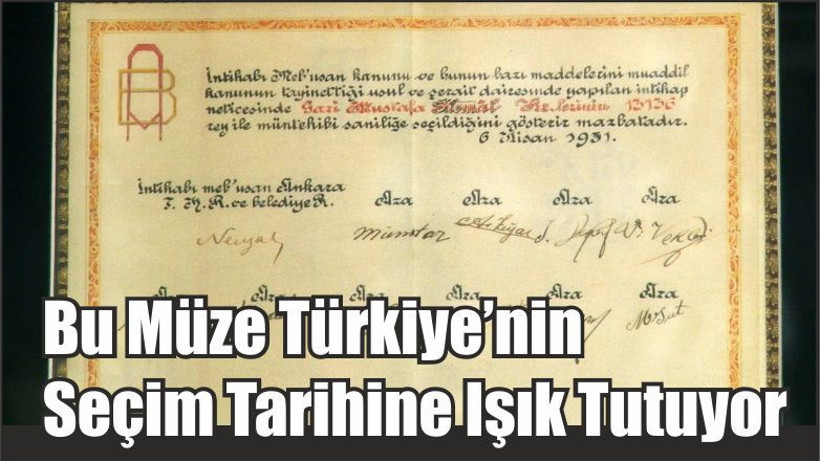 İntihabı Meb'usan kanunu ve bunun bazı maddelerini muaddil
kanunun tayinettiği usul ve şerait dairesinde yapılan intihap
neticesinde Gazi Mustafa Kemâl Hz.lerinin 13136
rey ile müntehibi saniliğe seçildiğini gösterir mazbatadır.
6 Nisan 1931.
İntihabı meb'usan Ankara
T. H. R. ve belediye R.
Aza Aza Aza Aza
Nevzat Mümtaz
Aza Aza Aza Aza
Bu Müze Türkiye'nin
Seçim Tarihine Işık Tutuyor